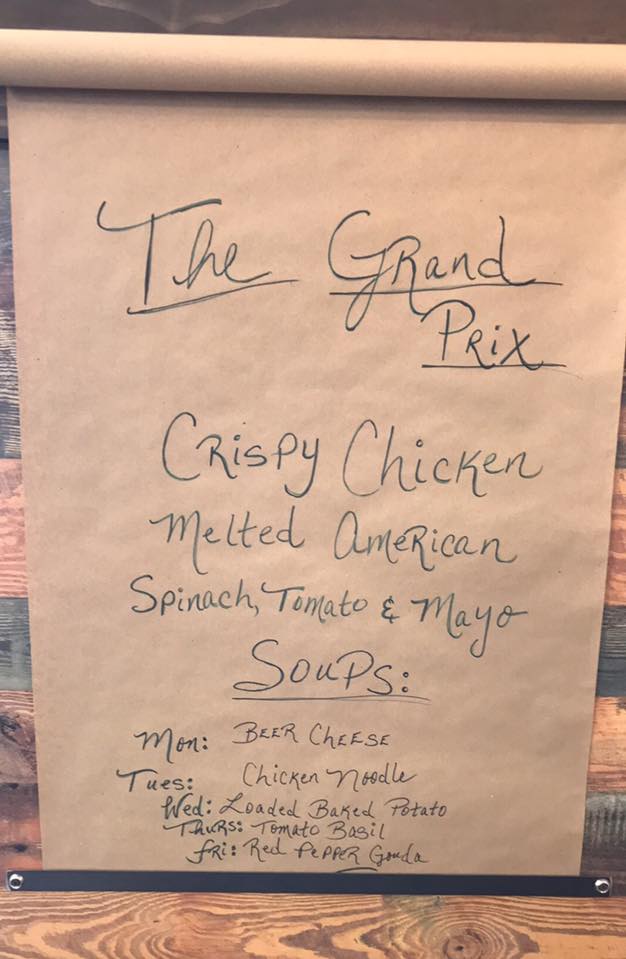 The Grand
Prix
Crispy Chicken
Melted American
Spinach, Tomato & Mayo
Soups:
Mon: BEER CHEESE
Tues: Chicken Noodle
Wed: Loaded Baked Potato
Thurs: Tomato Basil
Fri: Red Pepper Gouda